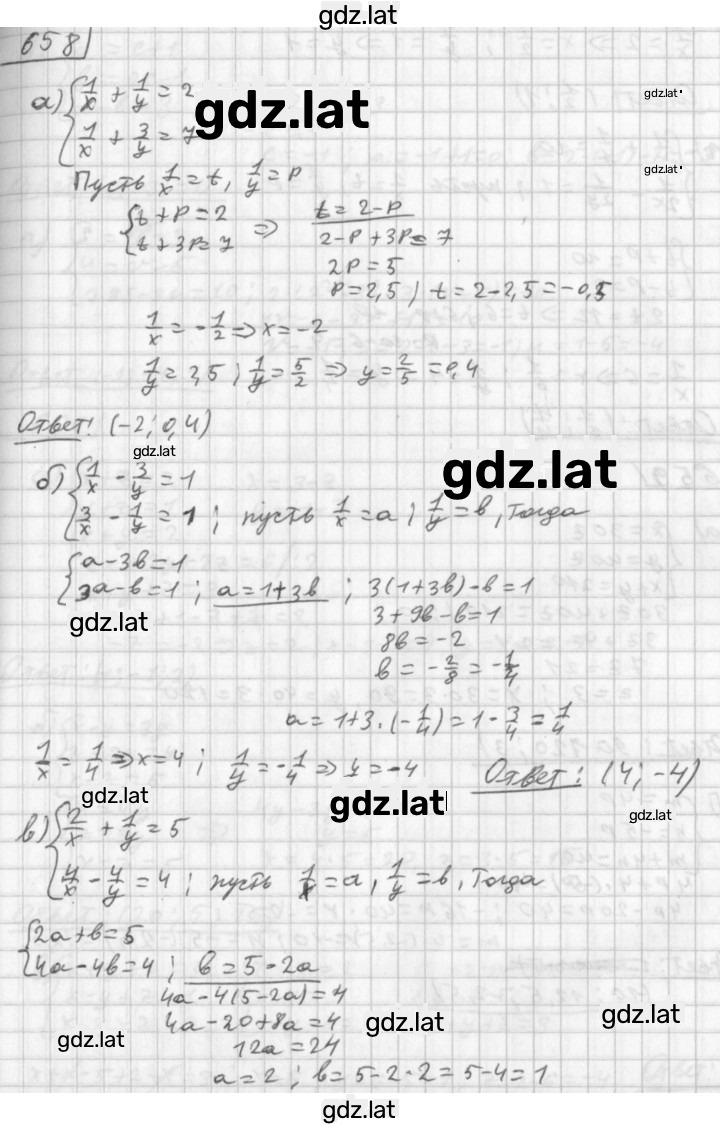 gdz.lat
658
а) { 1/x + 1/y = 2
gdz.lat
gdz.lat
1/x + 3/y = 7
gdz.lat
Пусть 1/x = t, 1/y = p
{ t + p = 2
t + 3p = 7 ⇒ t = 2 - p
2 - p + 3p = 7
2p = 5
p = 2,5 ; t = 2 - 2,5 = -0,5
1/x = -1/2 ⇒ x = -2
1/y = 2,5 ; 1/y = 5/2 ⇒ y = 2/5 = 0,4
Ответ: (-2; 0,4)
gdz.lat
gdz.lat
б) { 1/x - 3/y = 1
3/x - 1/y = 1 ; пусть 1/x = a ; 1/y = b, Тогда
{ a - 3b = 1
3a - b = 1 ; a = 1 + 3b ; 3(1 + 3b) - b = 1
gdz.lat
3 + 9b - b = 1
8b = -2
b = -2/8 = -1/4
a = 1 + 3 · (-1/4) = 1 - 3/4 = 1/4
1/x = 1/4 ⇒ x = 4 ; 1/y = -1/4 ⇒ y = -4
Ответ: (4; -4)
gdz.lat
gdz.lat
gdz.lat
в) { 2/x + 1/y = 5
4/x - 4/y = 4 ; пусть 1/x = a, 1/y = b, Тогда
{ 2a + b = 5
4a - 4b = 4 ; b = 5 - 2a
4a - 4(5 - 2a) = 4
4a - 20 + 8a = 4
gdz.lat
gdz.lat
gdz.lat
12a = 24
a = 2 ; b = 5 - 2 · 2 = 5 - 4 = 1
gdz.lat